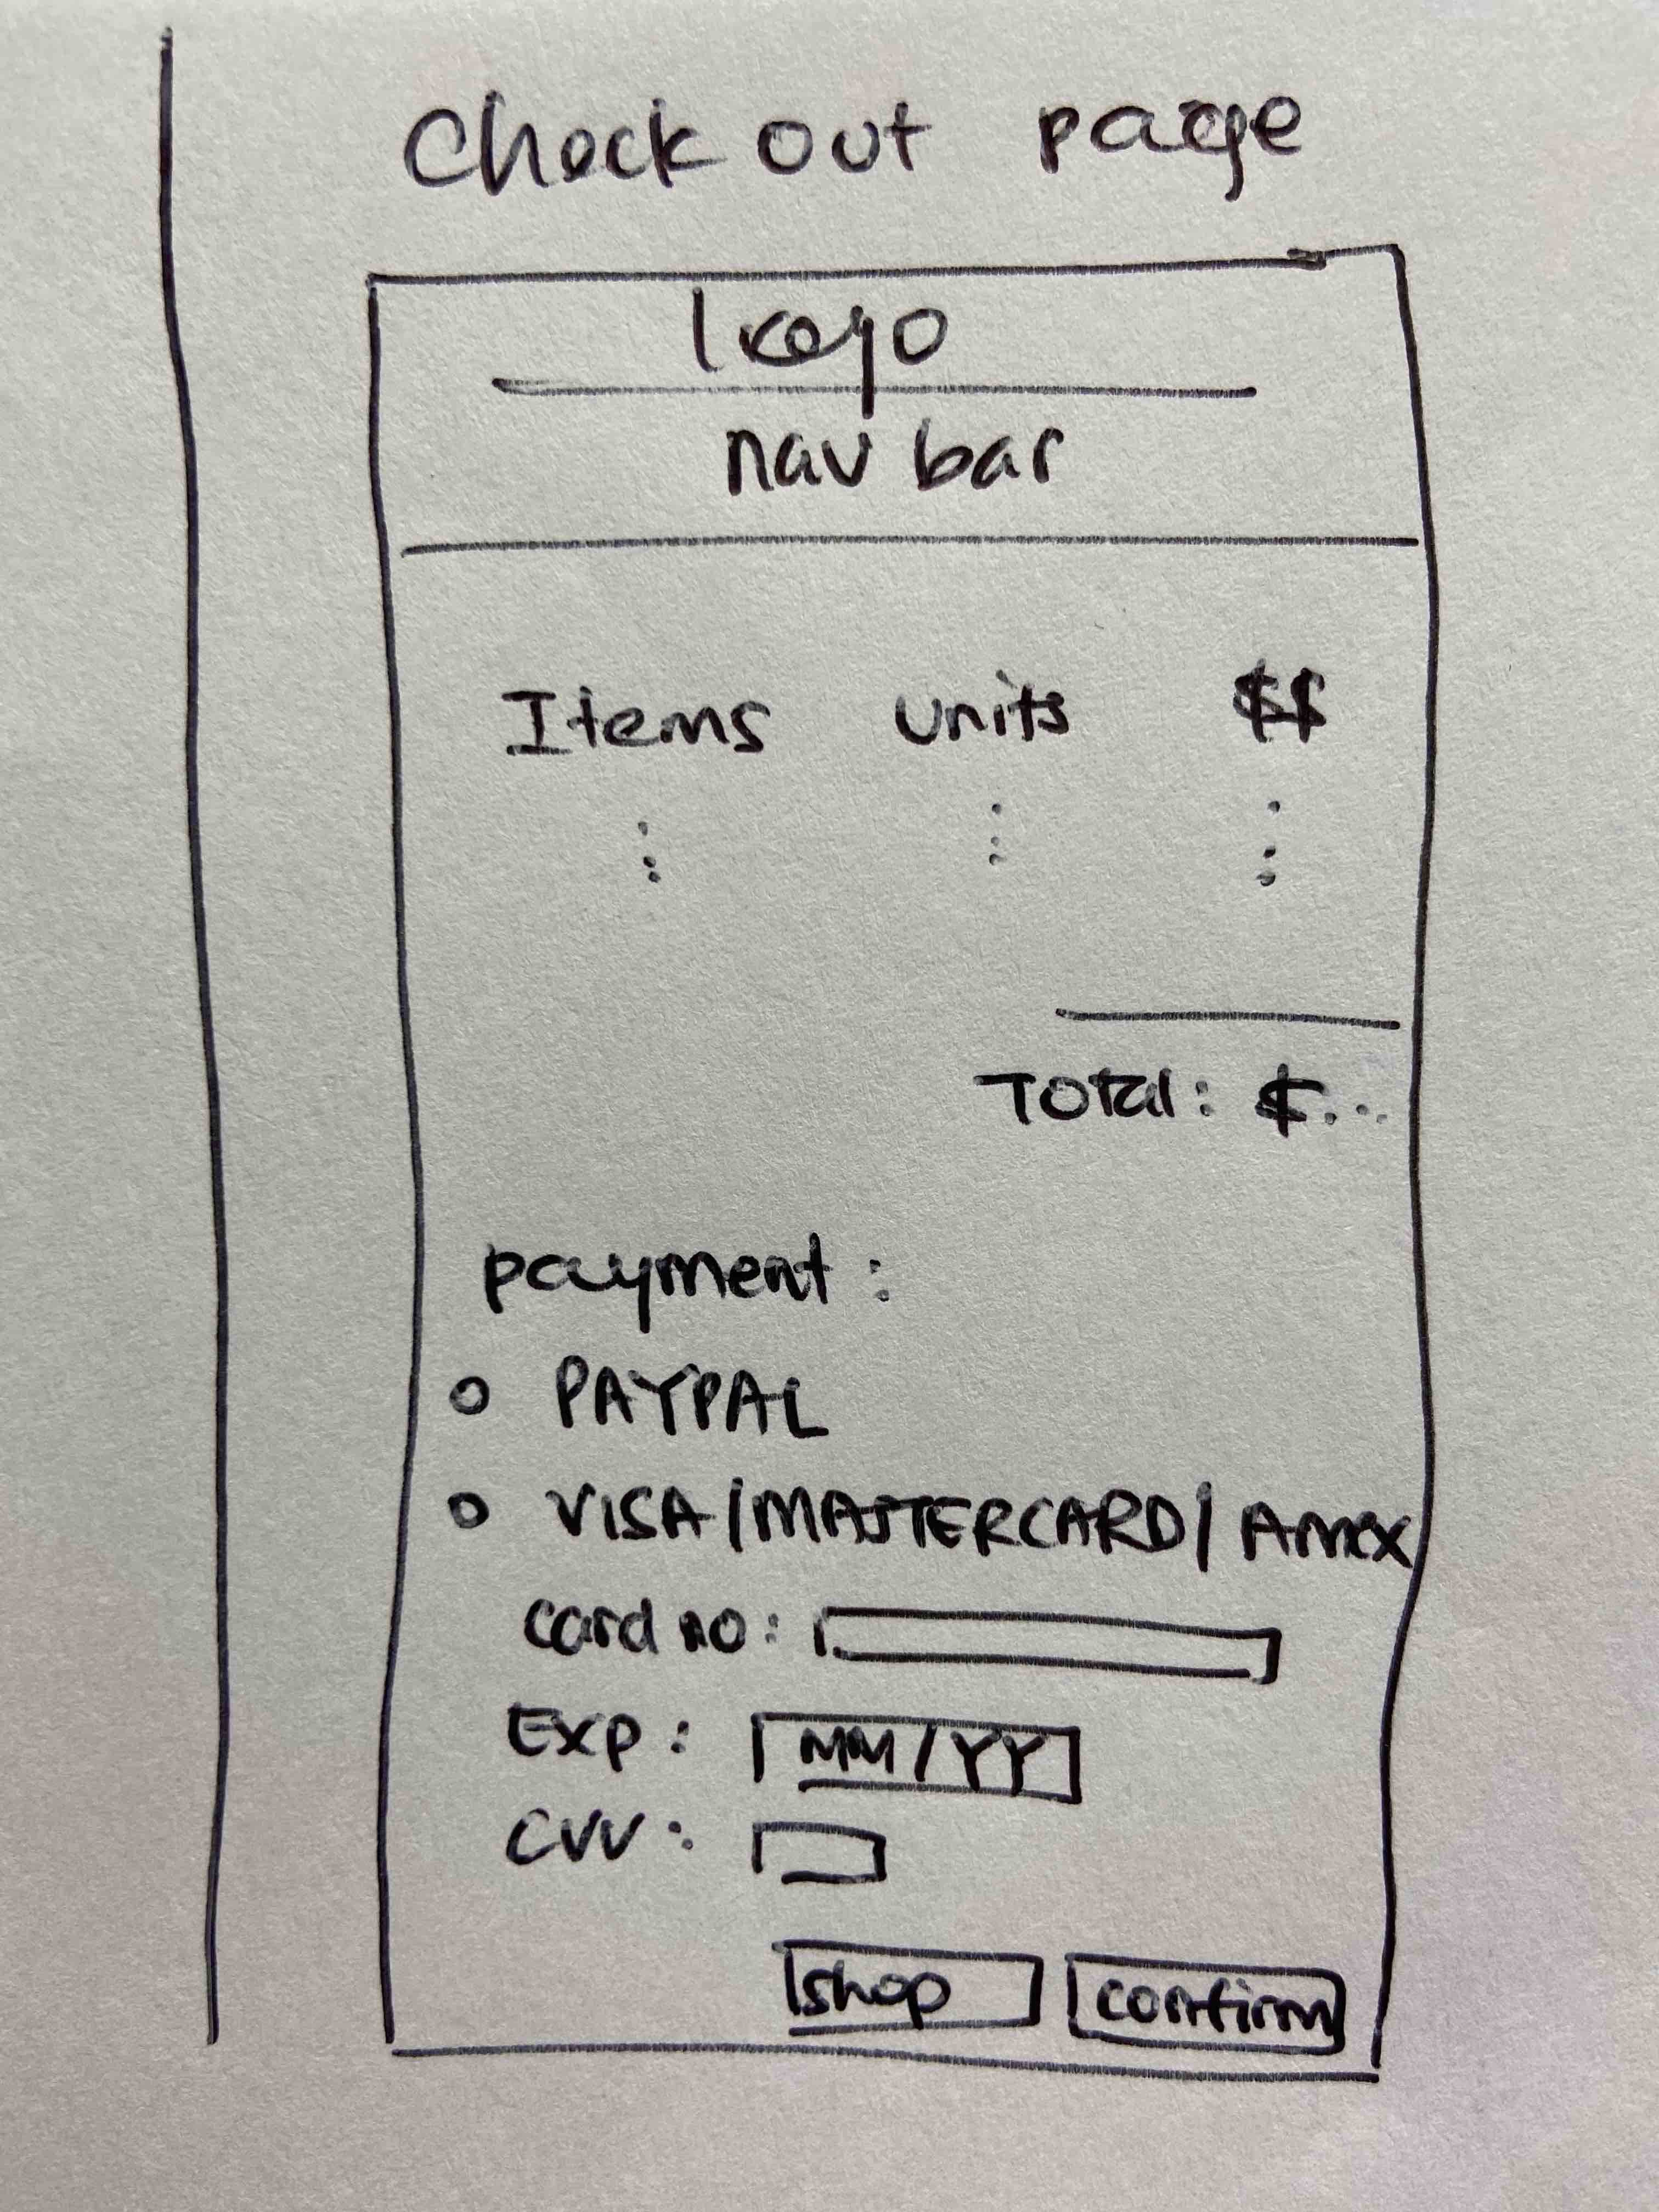 Check out page
Ikeyo
nav bar
Items units $$
Total: $...
payment :
PAYPAL
VISA/MASTERCARD/Amex
card no:
Exp: MM/YY
CVV:
shop confirm